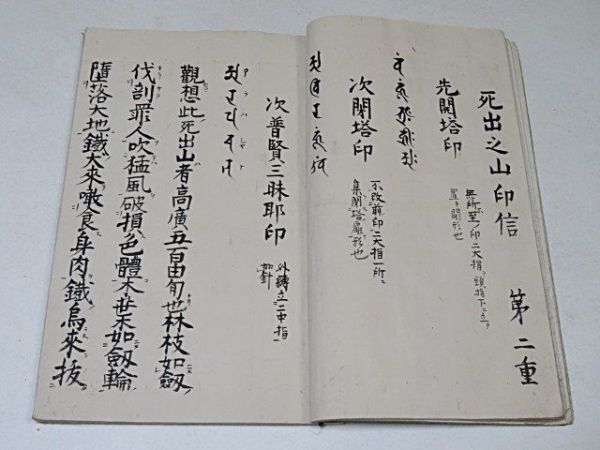 死出之山印信 第二重
先開塔印
無所至ノ印二大指頭指下ニ立テ
置キ開形也
次閉塔印
不改前印二大指一所ニ
集閉塔形也
次普賢三昧耶印
外縛立二中指
如針
觀想此死出山者高廣五百由旬也林枝如劔
伐剖罪人吹猛風破損色體木葉如劔輪
墮落大地鐵犬來噉食身肉鐵烏來抜